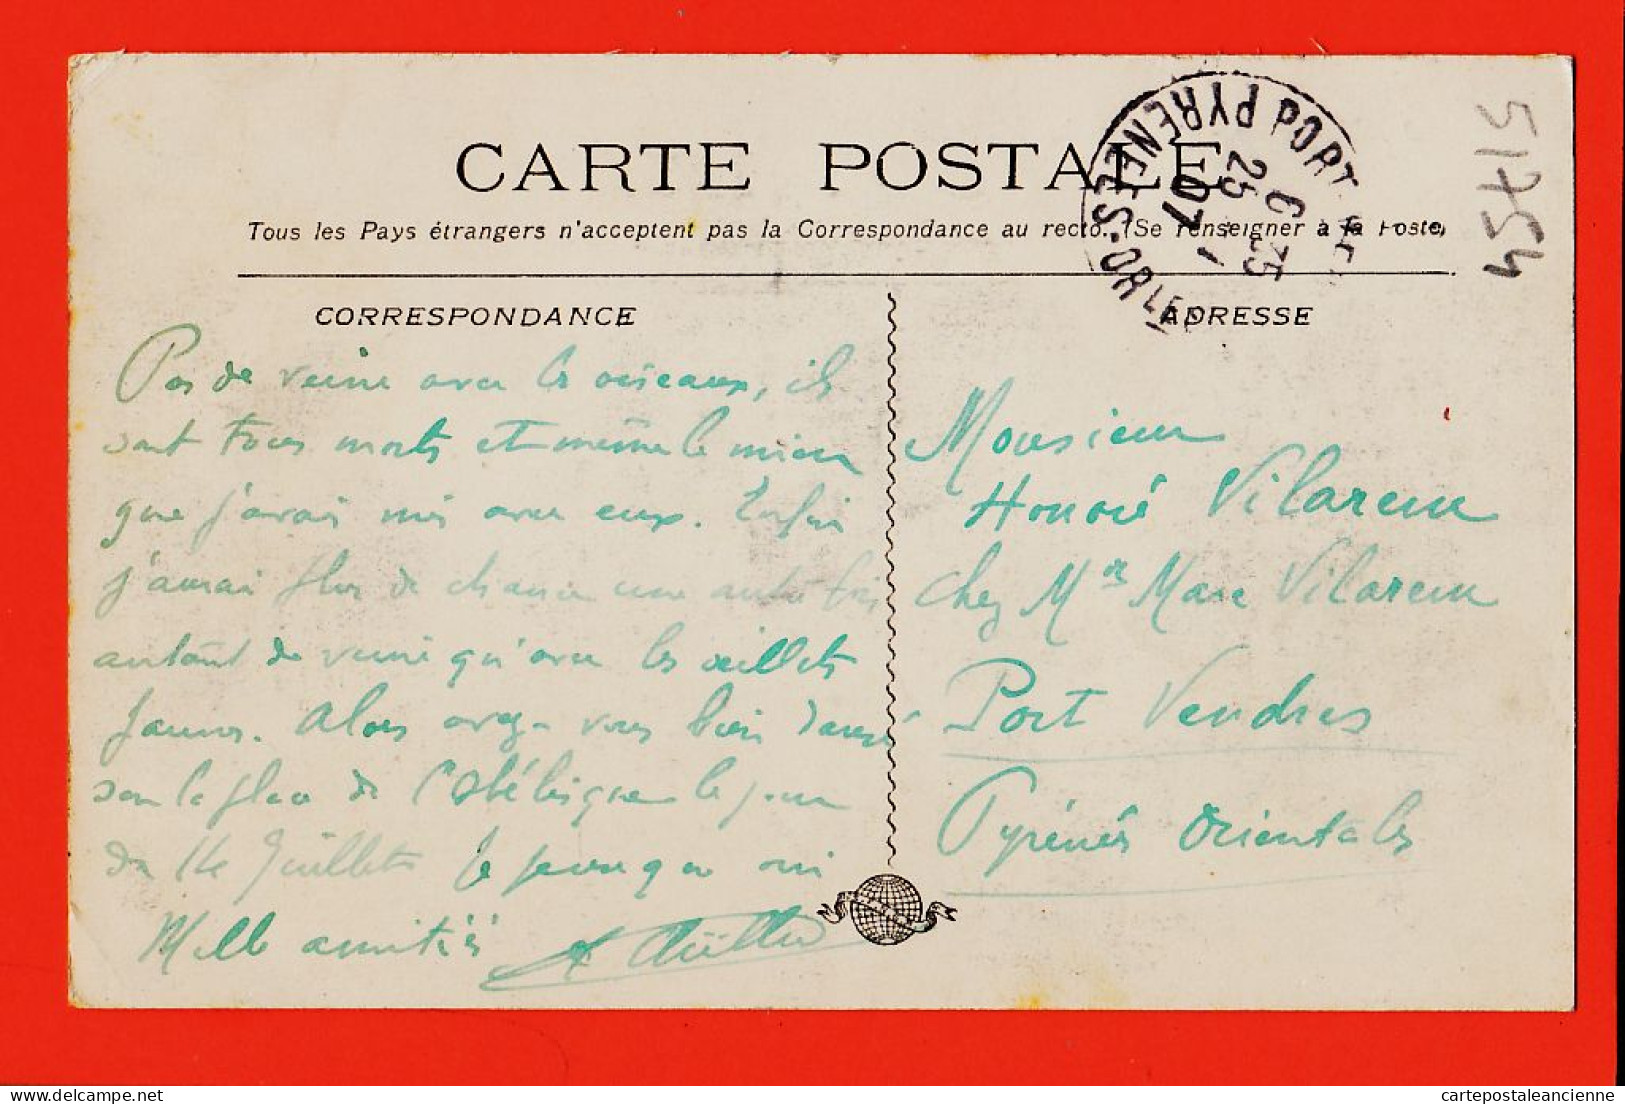 CARTE POSTALE
Tous les Pays étrangers n'acceptent pas la Correspondance au recto. (Se renseigner à la Poste)
CORRESPONDANCE
Pas de veine avec les oiseaux, ils
sont tous morts et même le mien
que j'avais mis avec eux. Enfin
j'aurai plus de chance une autre fois
autant de veine qu'avec les oeillets
jaunes. Alors avez-vous bien dansé
sur la place de l'Obélisque le jour
du 14 Juillet. Je pense que oui
Mille amitiés
ADRESSE
Monsieur
Honoré Vilarem
chez Mr Marc Vilarem
Port Vendres
Pyrénées Orientales
PORT
PYRENEES-ORLES
6 35
25 -7
07
51754
cartepostaleancienne